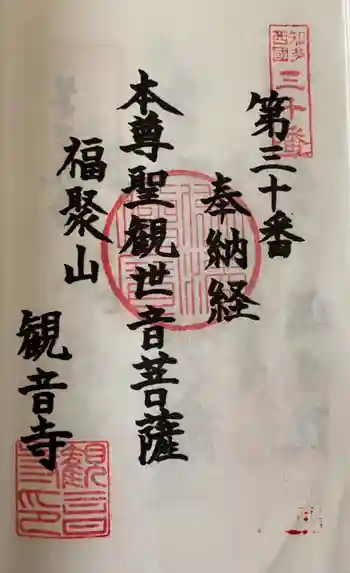 知多
西國
三十番
第三十番
奉納経
本尊聖観世音菩薩
福聚山
観音寺